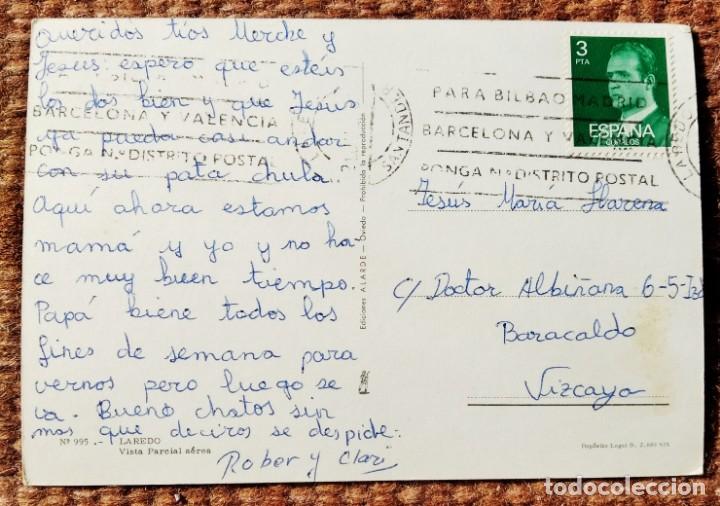 Queridos tíos Merche y
Jesus: espero que estéis
los dos bien y que Jesús
ya pueda casi andar
con su pata chula.
Aquí ahora estamos
mamá y yo y no ha-
ce muy buen tiempo.
Papá biene todos los
fines de semana para
vernos pero luego se
va. Bueno chatos sin
mas que deciros se despide:
Rober y Clari
BARCELONA Y VALENCIA
PONGA Nº DISTRITO POSTAL
Nº 995.- LAREDO
Vista Parcial aérea
Ediciones ALARDE — Oviedo — Prohibida la reproducción
SANTANDER
PARA BILBAO MADRID
BARCELONA Y VA
PONGA Nº DISTRITO POSTAL
LAREDO
3
PTA
ESPAÑA
Jesús María Llarena
C/ Doctor Albiñana 6-5-Izd
Baracaldo
Vizcaya
Depósito Legal B.
todocoleccion
todocoleccion.net